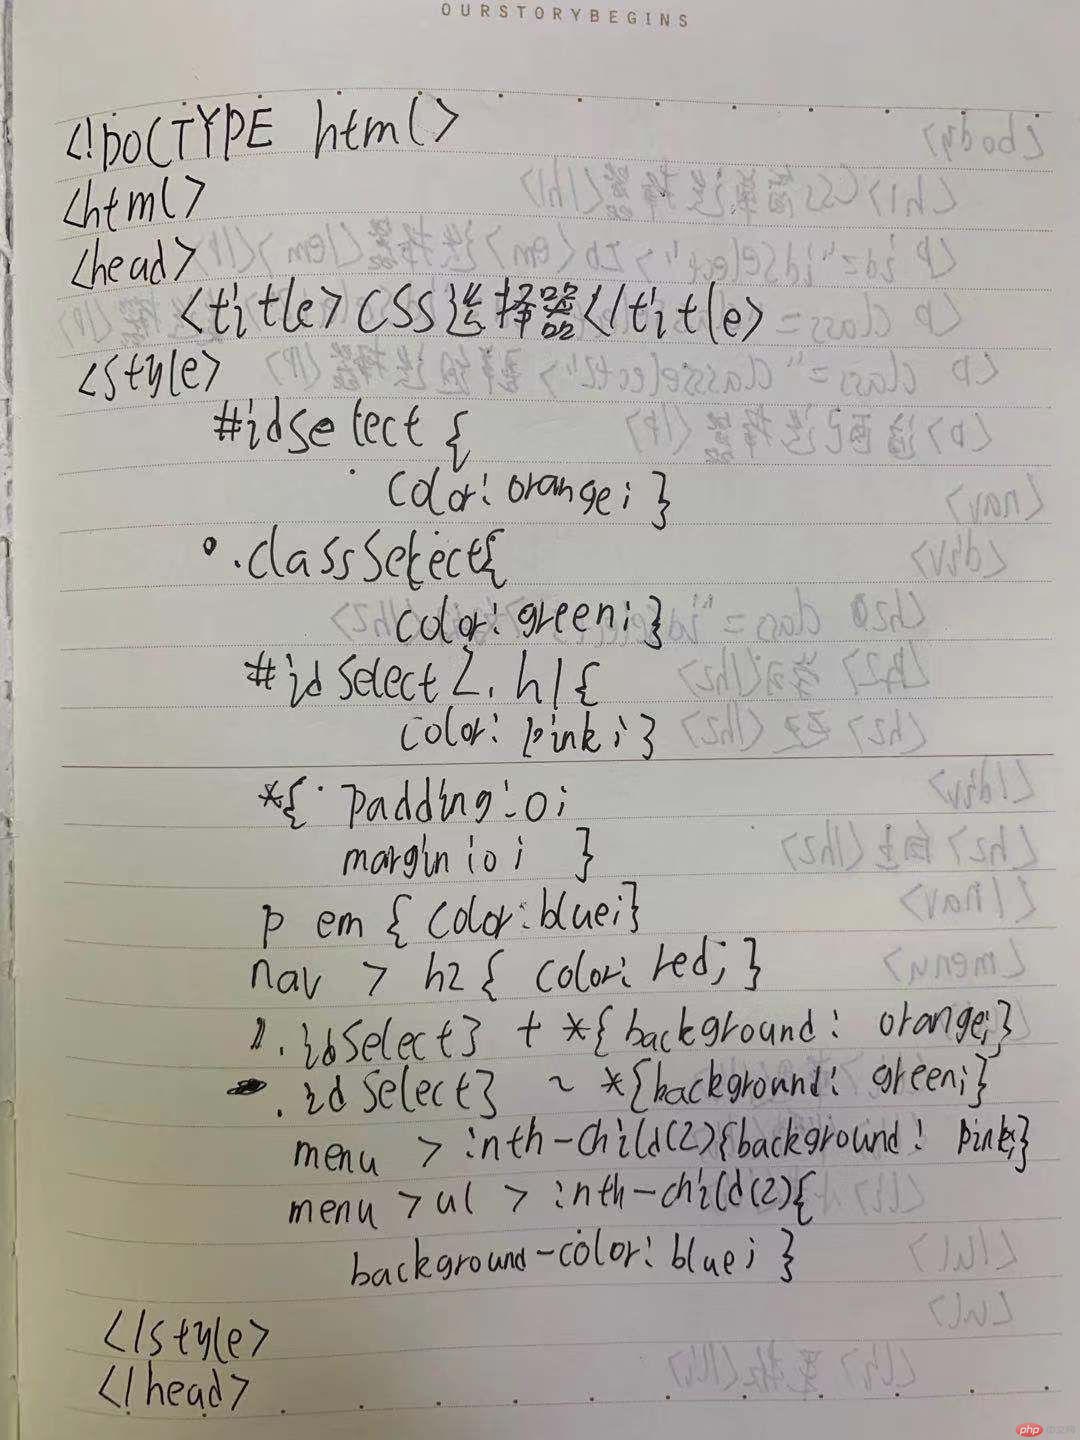 OURSTORYBEGINS
<!DOCTYPE html>
<html>
<head>
<title>CSS选择器</title>
<style>
#idselect {
color: orange; }
.classSelect{
color: green; }
#idSelect2, h1{
color: pink; }
*{ padding: 0;
margin: 0; }
p em { color: blue; }
nav > h2 { color: red; }
.idSelect3 + *{ background: orange; }
.idSelect3 ~ *{ background: green; }
menu > :nth-child(2){ background: pink; }
menu > ul > :nth-child(2){
background-color: blue; }
</style>
</head>
php